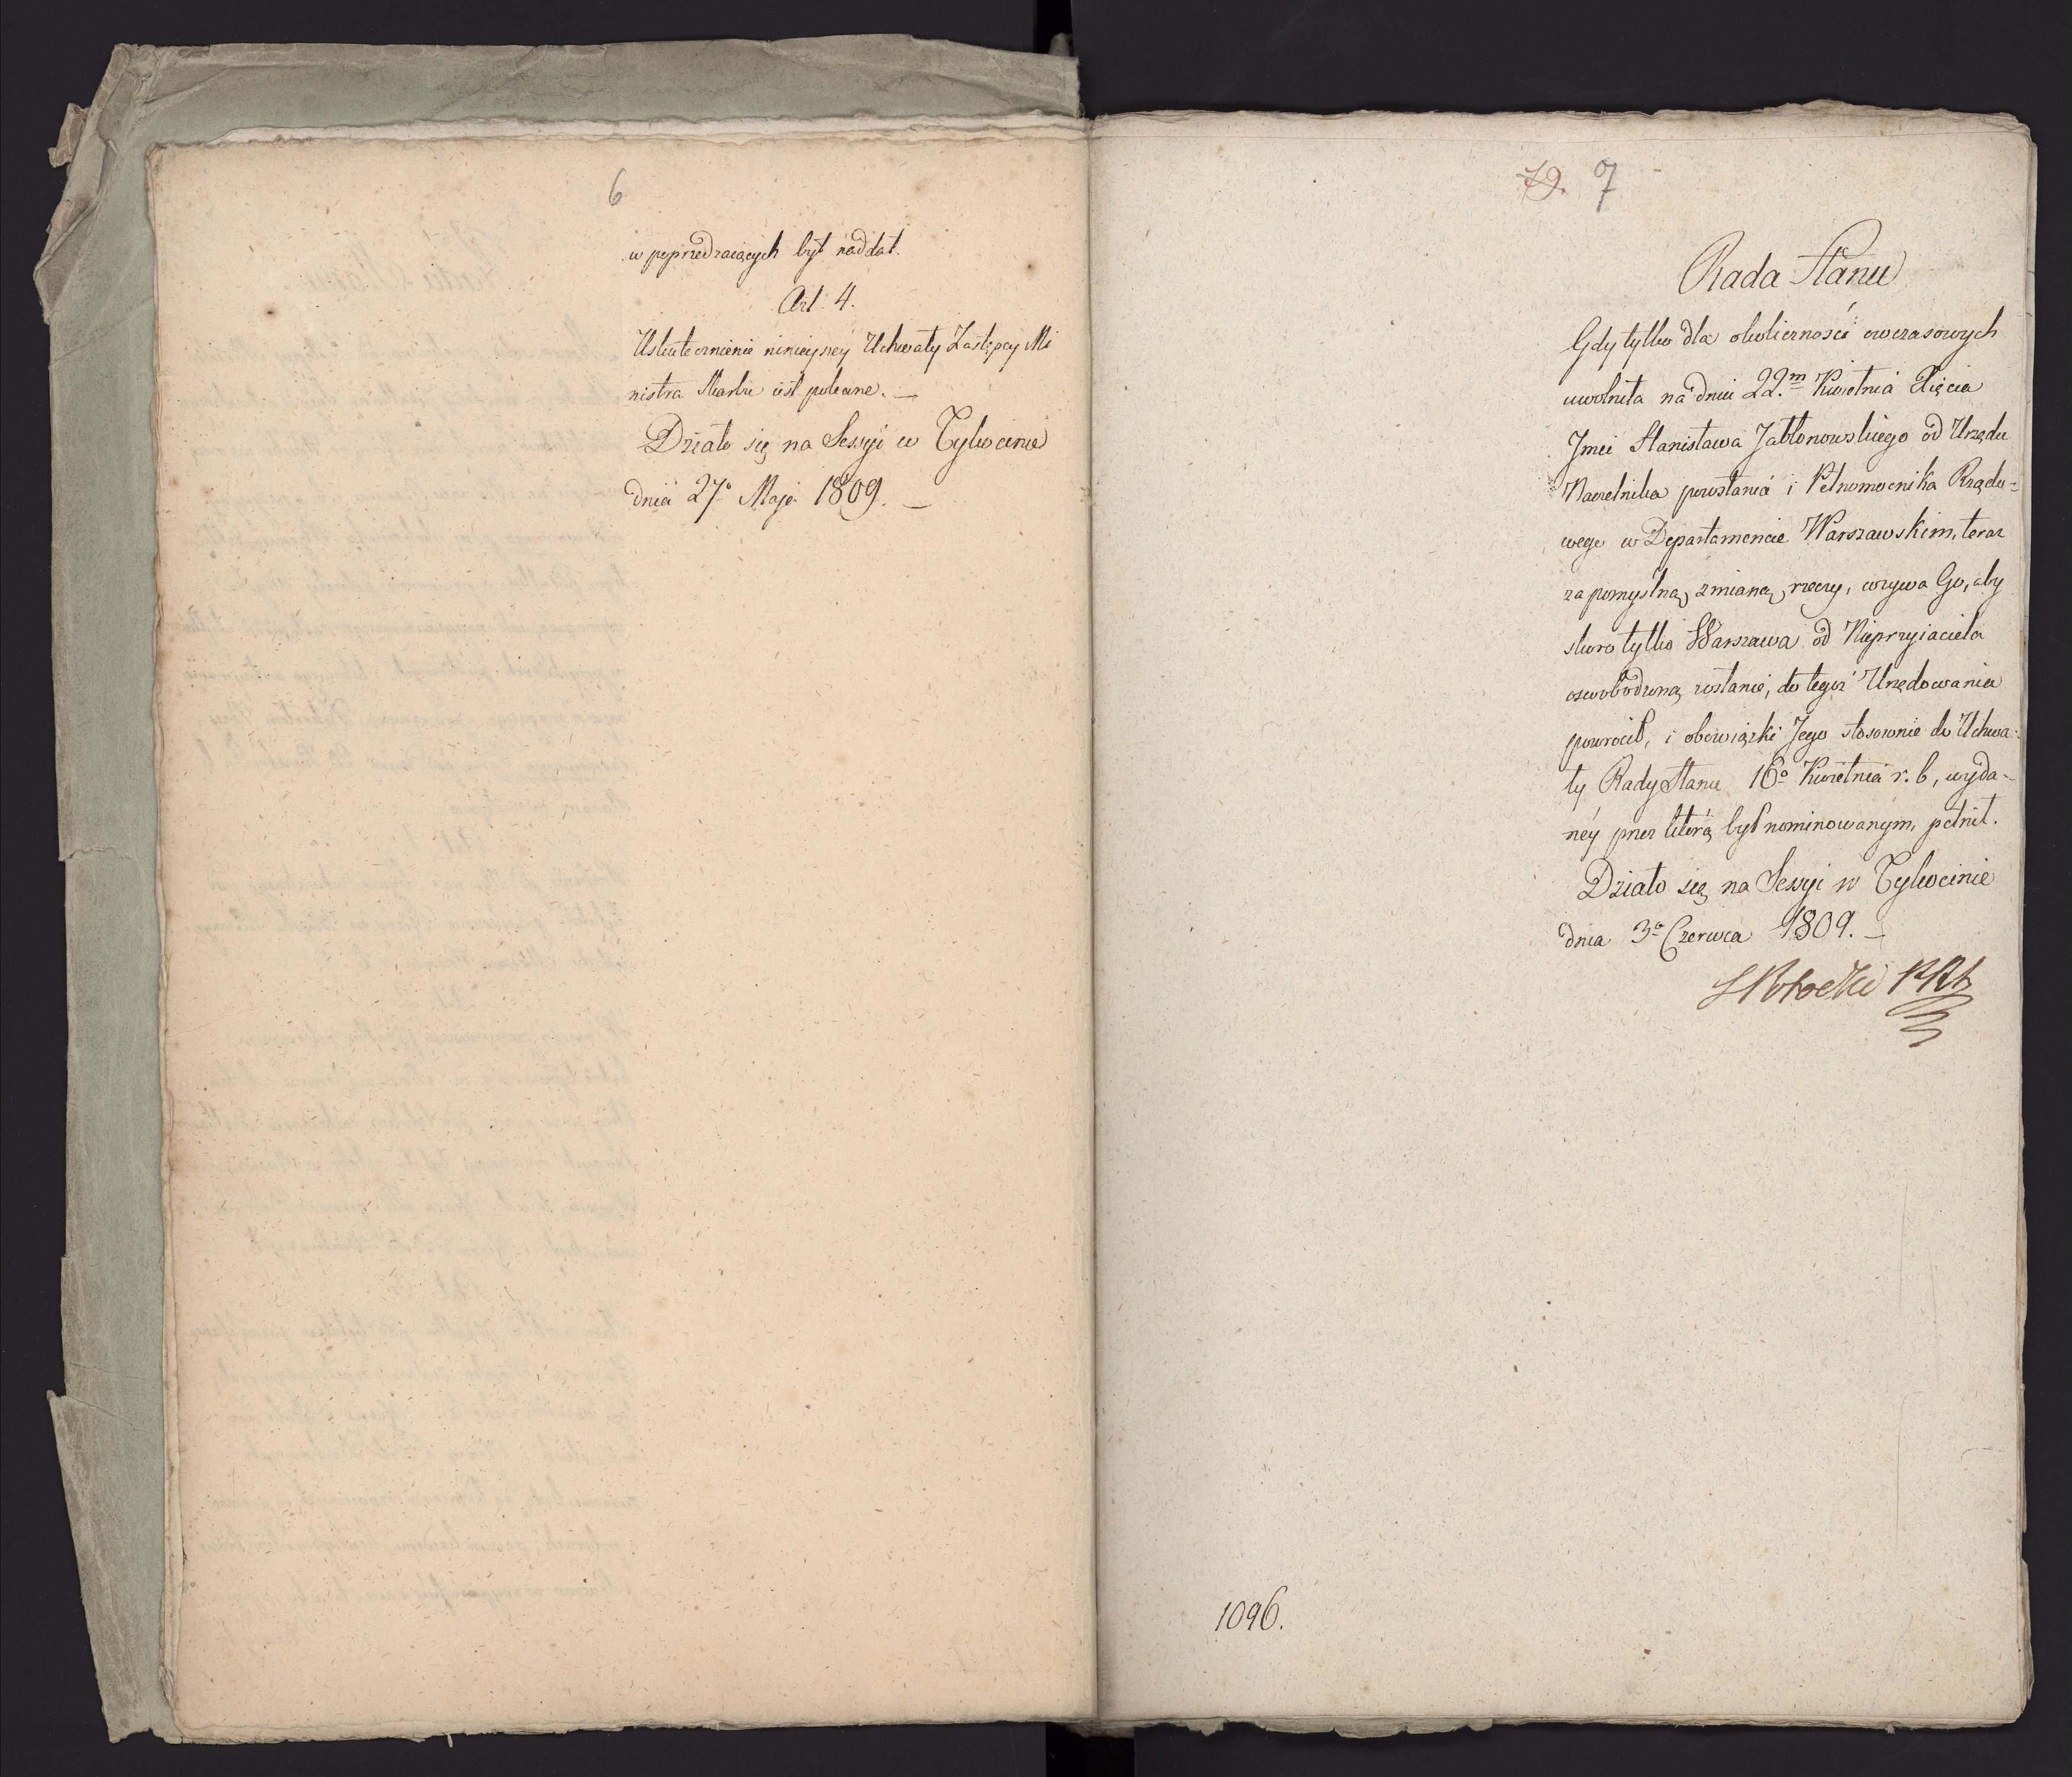 6
w poprzedzaiących był naddat.
Art. 4.
Uskutecznienie ninieyszey Uchwały Zastępcy Mi
nistra Skarbu iest polecone. —
Działo się na Sessyi w Tykocinie
dnia 27º Maja 1809. —
79. 7
Rada Stanu
Gdy tylko dla okoliczności owczasowych
uwolniła na dniu 22.m Kwietnia Xięcia
Jmci Stanisława Jabłonowskiego od Urzędu
Naczelnika powstania i Pełnomocnika Rządo=
wego w Departamencie Warszawskim, teraz
za pomyślną zmianą rzeczy, wzywa Go, aby
skoro tylko Warszawa od Nieprzyiaciela
oswobodzoną zostanie, do tegoż Urzędowania
powrócił, i obowiązki Jego stosownie do Uchwa=
ły Rady Stanu 16º Kwietnia r. b, wyda=
néy przez którą był nominowanym, pełnił.
Działo się na Sessyi w Tykocinie
dnia 3º Czerwca 1809. —
S Potocki
1096.